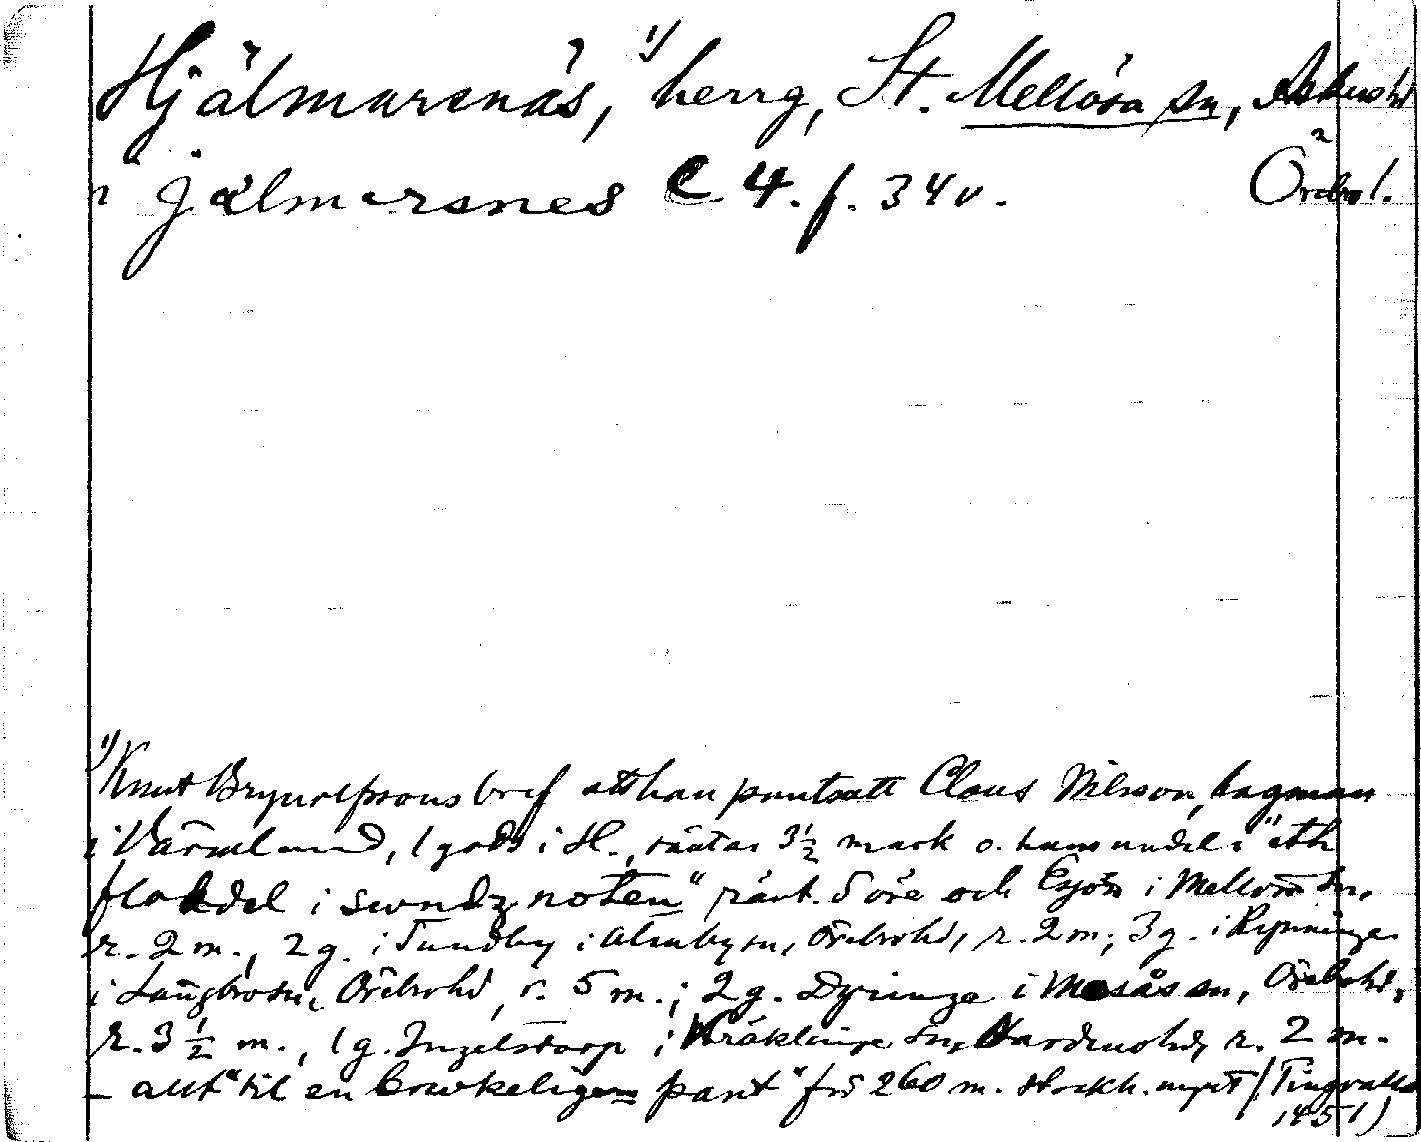 Hjälmarsnäs,¹⁾ herrg, St. Mellösa sn, Askers hd
Örebro l.
i Jælmarsnes C 4. f. 34 v.
¹⁾ Knut Brynolfssons bref att han pantsatt Claus Nilsson, lagman
i Värmland, 1 gods i H., räntar 3½ mark o. hans andel i "eth
flokdel i swndz noten" ränt. 5 öre och i Mellösa sn,
r. 2 m., 2 g. i Tundby i Almby sn, Örebro hd, r. 2 m; 3 g. i Rynninge
i Längbro sn, Örebro hd, r. 5 m.; 2 g. Dyringe i Mosås sn, Örebro hd,
r. 3½ m., 1 g. Ingelstorp i Kräklinge sn, Hardemo hd, r. 2 m.
– allt "til en brukeligen pant" för 260 m. stockh. mynt (Tingvalla
1451)